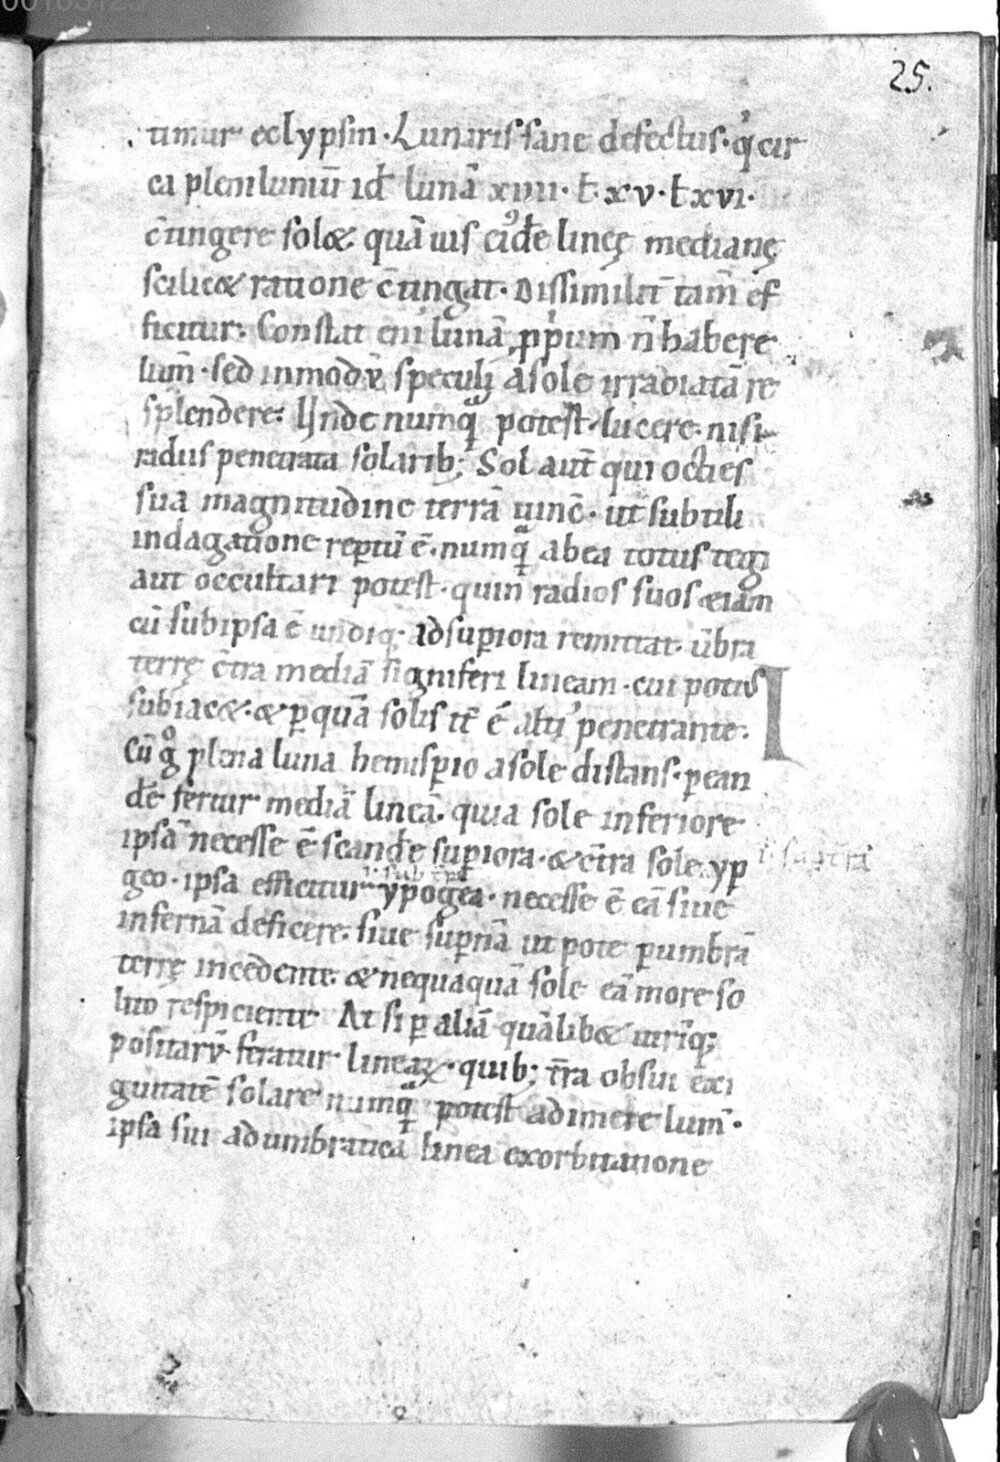 00103125
25.
timur eclypsin. Lunaris sane defectus. q̇ cir
ca pleniluniū id ł lunā xiiii. ł. xv. ł xvi.
c̄tingere sol&. quā uis ei᷒dē lineę medianę
scilic& ratione c̄tingat. Dissimilit̄ tam̄ ef
ficitur. Constat eni lunā ꝓpͥum n̄ habere
lum̄. sed in modū speculi a sole irradiatā re
splendere. Unde numꝗᵃ potest lucere. nisi
radiis penetrata solarib; Sol aut̄ qui octies
sua magnitudine terrā uinc̄. ut subtili
indagatione reꝑtū ē. numꝗᵃ ab ea totus tegi
aut occultari potest. quin radios suos etiam
cū sub ipsa ē undiq; ad suꝑiora remittat. ūbra
terrę c̄tra mediā signiferi lineam. cui potius
subiac&. & ꝑ quā solis it̄ ē altiͥ penetrante.
I
Cū gͦ plena luna hemisꝑio a sole distans. ꝑ ean
dē fertur mediā lineā. quia sole inferiore
ipsā necesse ē scandē suꝑiora. & c̄tra sole yꝑ
.i. sup̄ t̄rā
geo. ipsa efficitur ypogea. necesse ē eā siue
.i. sub t̄rā
infernā deficere. siue suꝑnā ut pote ꝑ umbrā
terrę incedente. & nequaquā sole eā more so
lito respiciente. At si ꝑ aliā quālib& utriq;
positarū feratur linearꝝ. quib; t̄ra ob sui exi
guitatē solare numꝗᵃ potest adimere lum̄.
ipsa sui ad umbratica linea exorbitatione